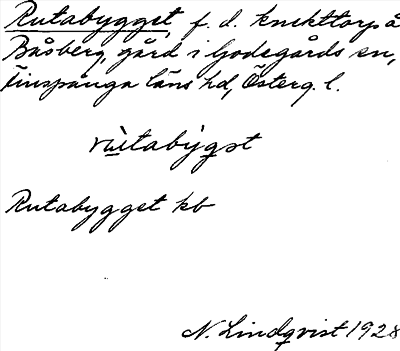 Rutabygget, f. d. knekttorp å
Båsberg, gård i Godegårds sn,
Finspånga läns hd, Österg. l.
rùtabỳgət
Rutabygget kb
N. Lindqvist 1928